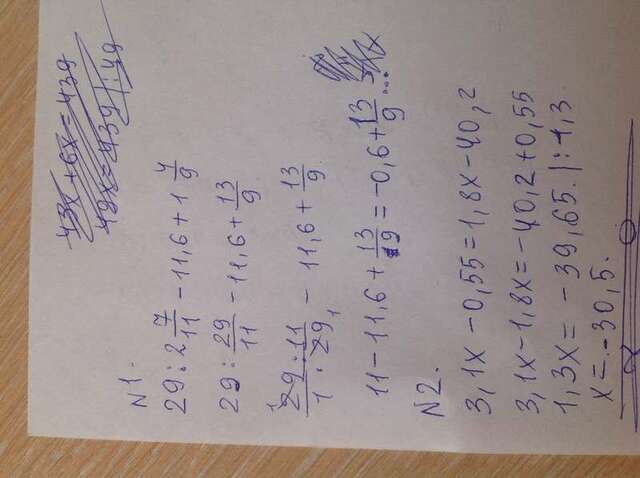 43x+6x=439
49x=439|:49
N1.
29:2 7/11 - 11,6 + 1 4/9
29: 29/11 - 11,6 + 13/9
29/1 · 11/29 - 11,6 + 13/9.
11-11,6+ 13/9 = -0,6+ 13/9 ...
N2.
3,1x-0,55=1,8x-40,2
3,1x-1,8x=-40,2+0,55
1,3x= -39,65. |:1,3.
x=-30,5.